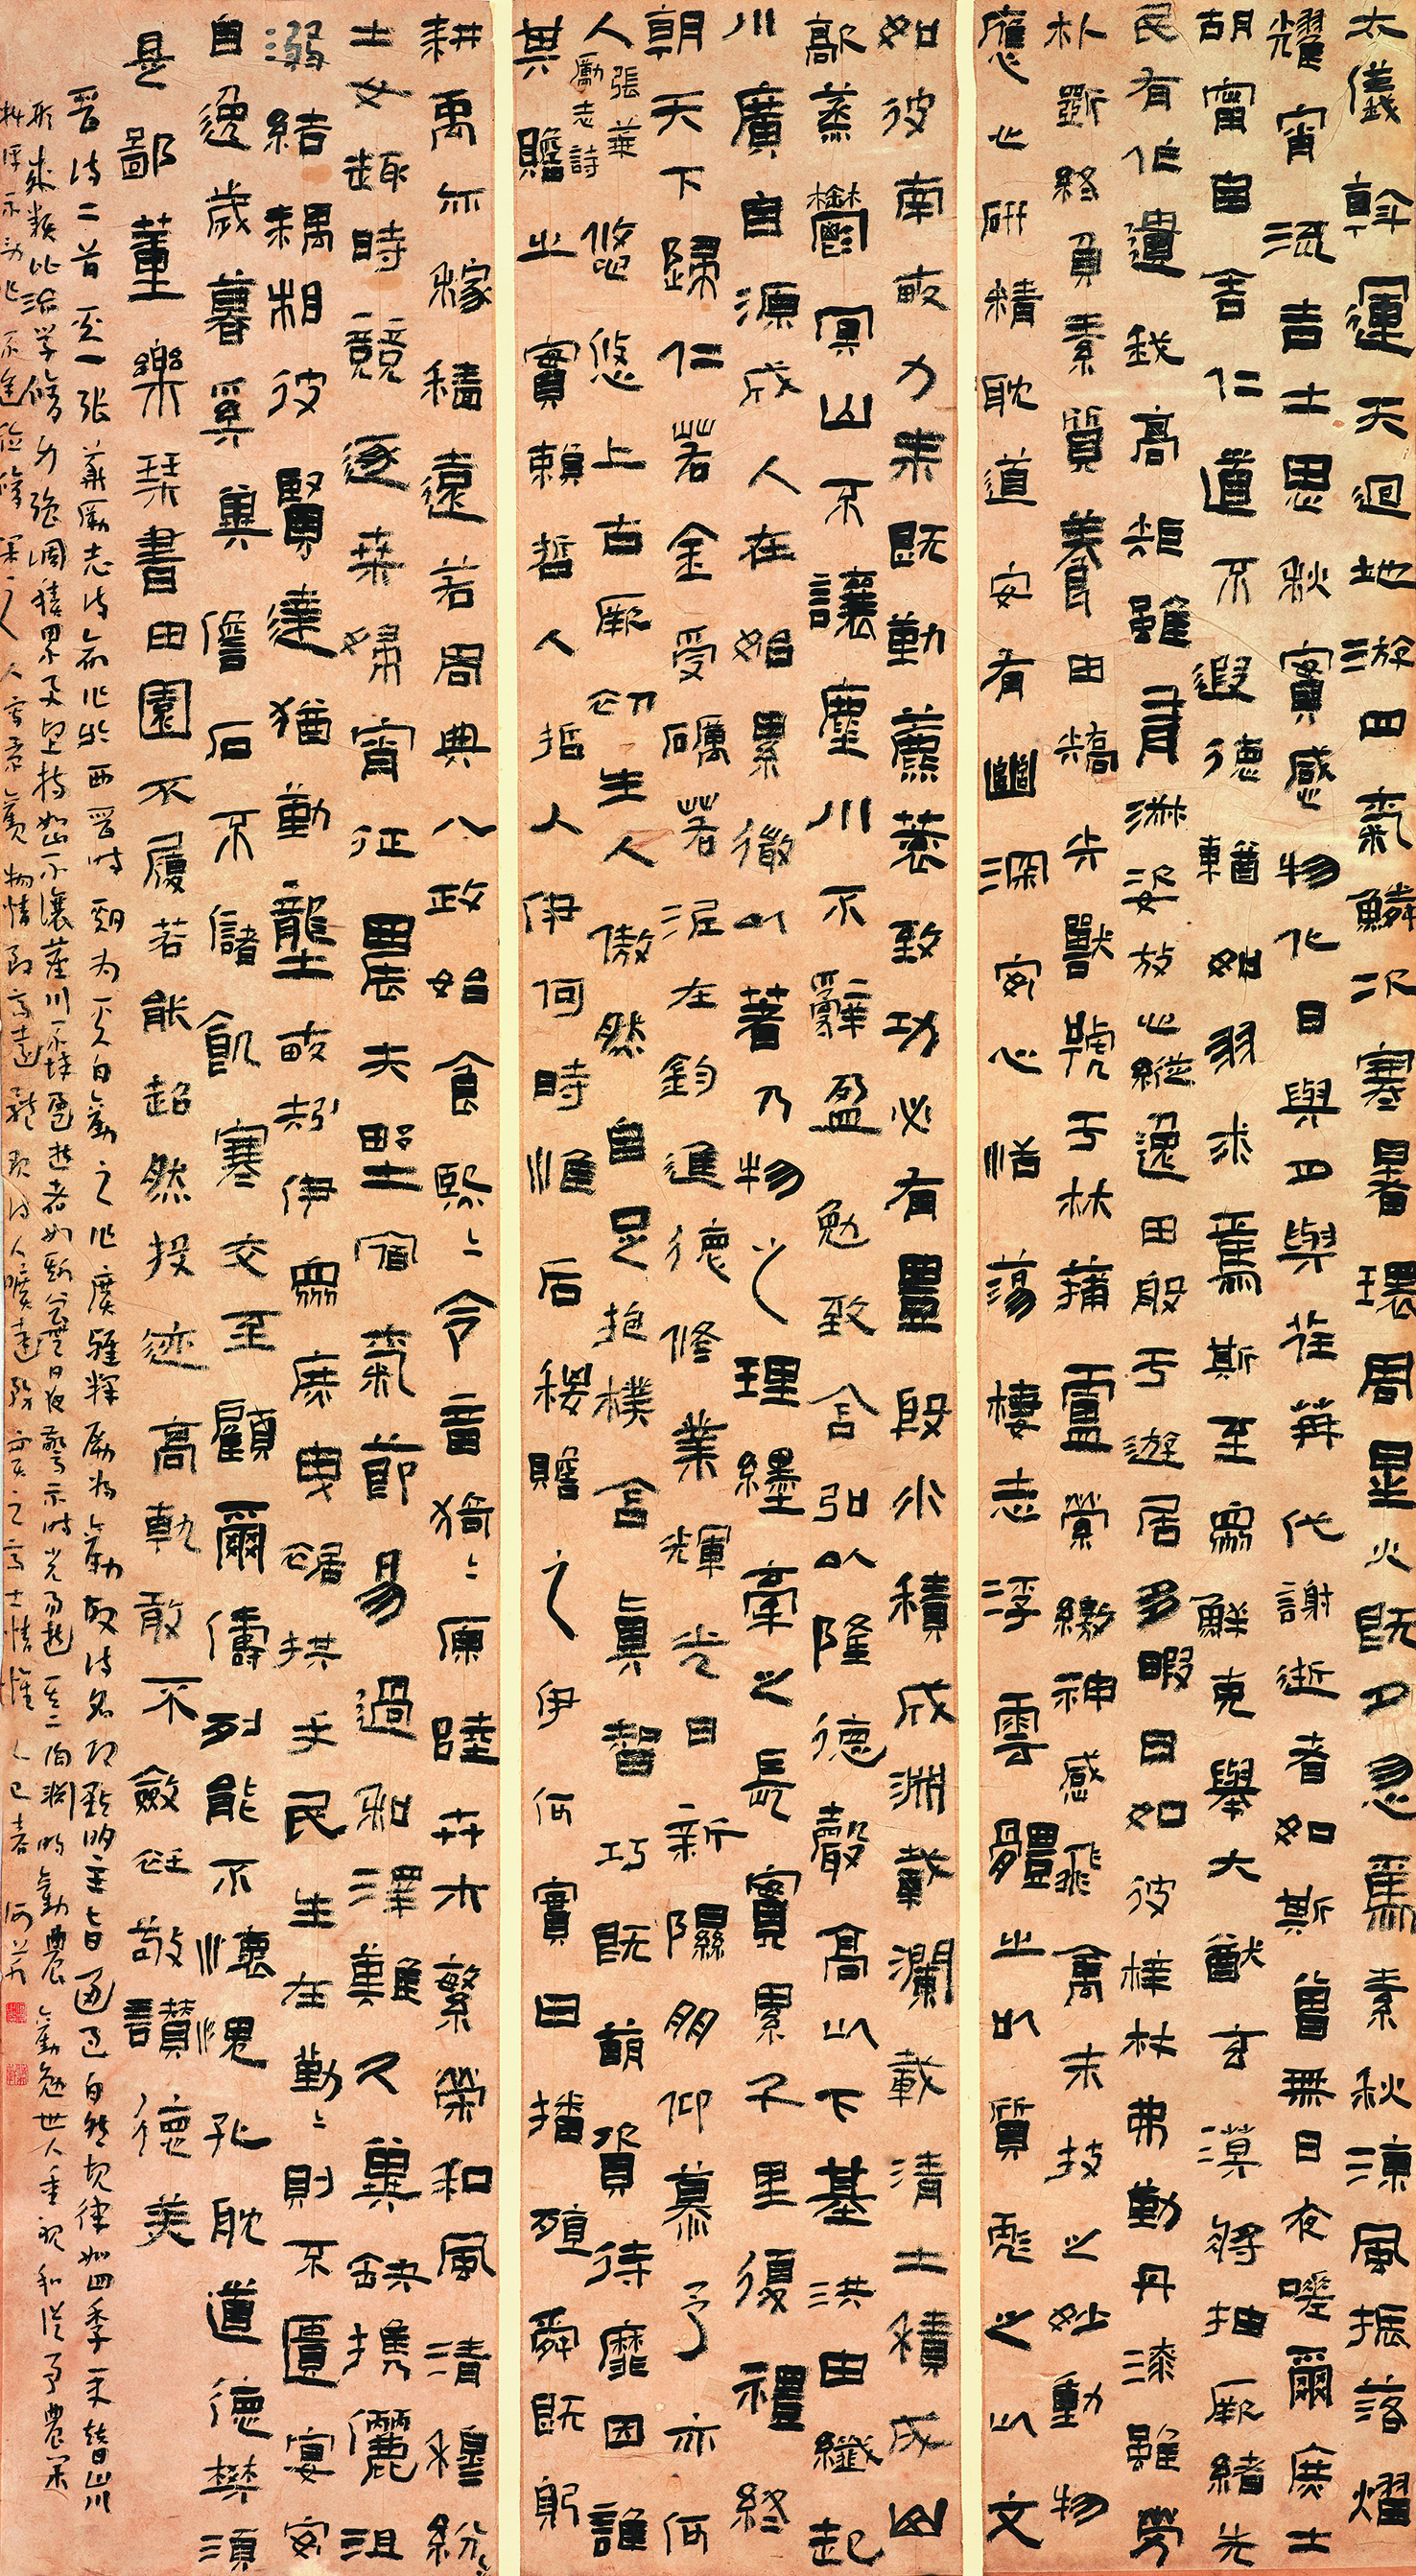 太儀斡運天迴地游四氣鱗次寒暑環周星火既夕忽焉素秋涼風振落熠
耀宵流吉士思秋寔感物化日與月與荏苒代謝逝者如斯曾無日夜嗟爾庶士
胡甯自舍仁道不遐德輶如羽求焉斯至眾鮮克舉大猷玄漠將抽厥緒先
民有作遺我高矩雖有淑姿放心縱逸田般于遊居多暇日如彼梓材弗勤丹漆雖勞
朴斲終負素質養由矯矢獸號于林蒲盧縈繳神感飛禽末技之妙動物
應心研精耽道安有幽深安心恬蕩棲志浮雲體之以質彪之以文
如彼南畝力耒既勤藨蓘致功必有豐殷水積成淵載瀾載清土積成山
歊蒸鬱冥山不讓塵川不辭盈勉致含弘以隆德聲高以下基洪由纖起
川廣自源成人在始累微以著乃物之理纆牽之長實累千里復禮終
朝天下歸仁若金受礪若泥在鈞進德修業輝光日新隰朋仰慕予亦何
人
張華
勵志詩
悠悠上古厥初生人傲然自足抱樸含真智巧既萌資待靡因誰
其贍之實賴哲人哲人伊何時惟后稷贍之伊何實曰播殖舜既躬
耕禹亦稼穡遠若周典八政始食熙〻令音猗〻原陸卉木繁榮和風清穆紛〻
士女趨時競逐桑婦宵征農夫野宿氣節易過和澤難久冀缺攜儷沮
溺結耦相彼賢達猶勤壟畝矧伊眾庶曳裾拱手民生在勤〻則不匱宴安
自逸歲暮奚冀儋石不儲飢寒交至顧爾儔列能不懷愧孔耽道德樊須
是鄙董樂琴書田園不履若能超然投迹高軌敢不斂衽敬讚德美
晉詩二首其一張華勵志詩作於西晉時期為其人自勵之作廣雅釋勵為勸故詩名即點明主旨通過自然規律如四季更替山川
形成類比治學修身強調積累及堅持如山不讓塵川不辭盈逝者如斯曾無日夜警示時光易逝其二陶淵明勸農勸勉世人重視和從事農業